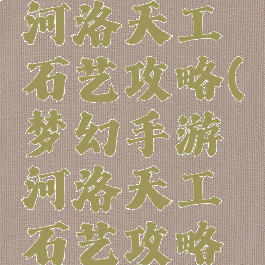 河洛天工
石艺攻略(
梦幻手游
河洛天工
石艺攻略